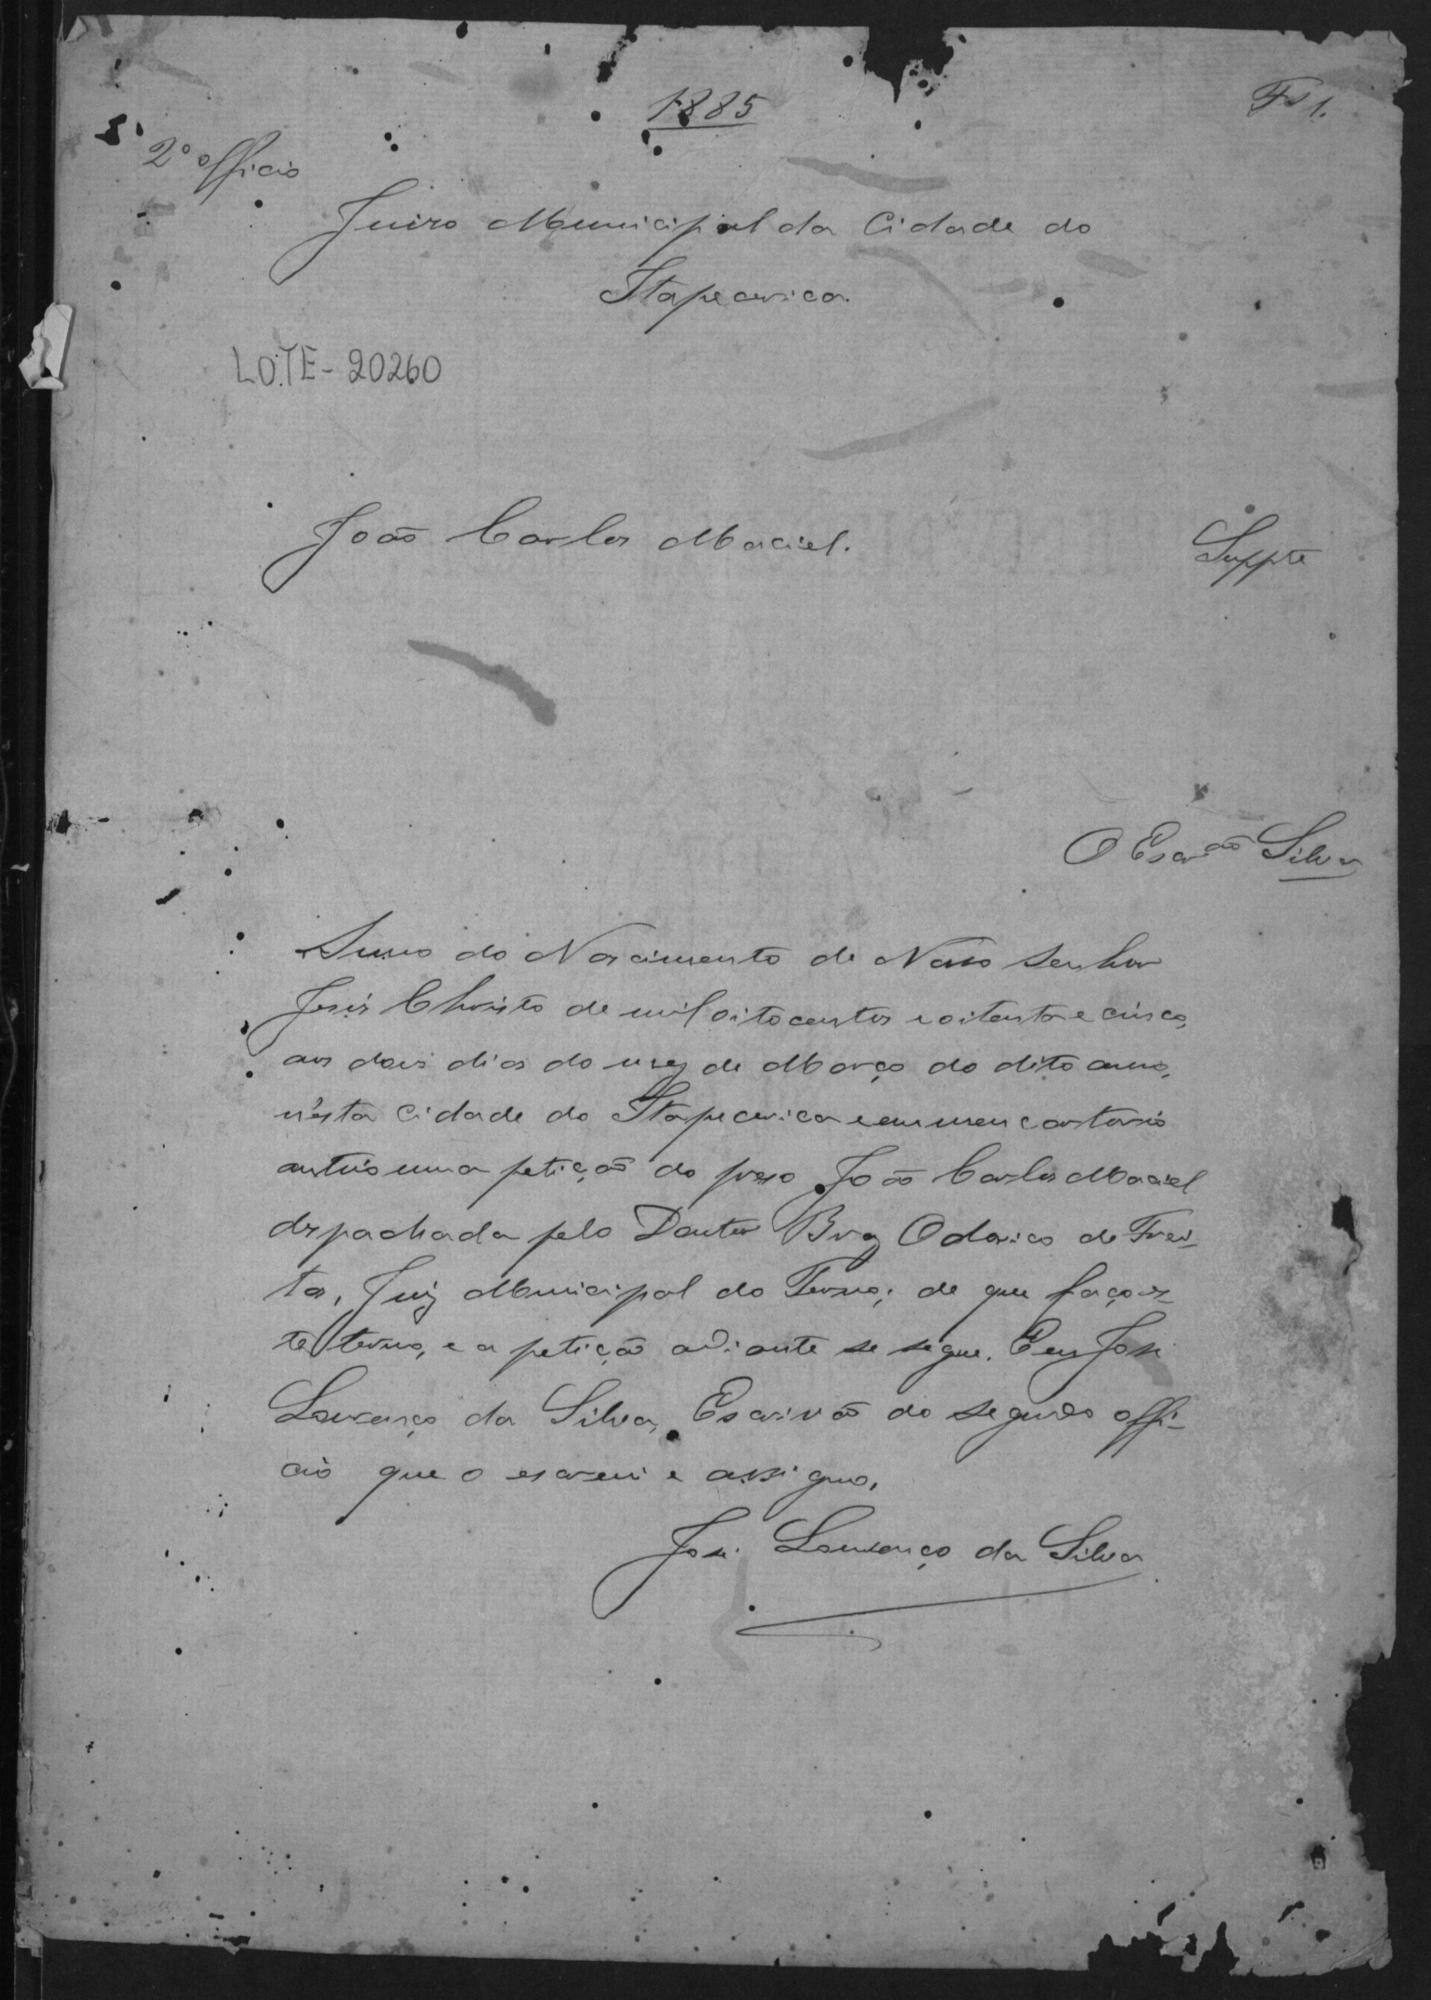 1885
Fs 1.
2º officio
Juizo Municipal da Cidade do
Itapecerica.
LOTE - 20260
João Carlos Maciel.
Suppte
O Escrvão Silva
Anno do Nascimento de Nosso Senhor
Jesus Christo de mil oitocentos e oitenta e cinco,
aos dois dias do mez de Março do dito anno,
n'esta Cidade do Itapecerica e em meu cartorio
autúo uma petição do preso João Carlos Maciel
despachada pelo Doutor Braz Odorico de Frei-
tas, Juiz Municipal do Termo; de que faço es-
te termo, e a petição adiante se segue. Eu José
Lourenço da Silva, Escrivão do segundo offi-
cio que o escrevi e assigno,
José Lourenço da Silva